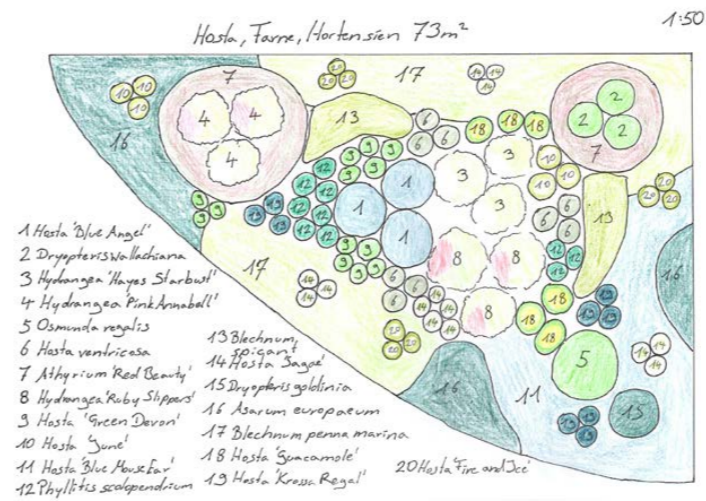 1:50
Hosta, Farne, Hortensien 73m²
1 Hosta 'Blue Angel'
2 Dryopteris wallachiana
3 Hydrangea 'Hayes Starbust'
4 Hydrangea 'Pink Annabell'
5 Osmunda regalis
6 Hosta ventricosa
7 Athyrium 'Red Beauty'
8 Hydrangea 'Ruby Slippers'
9 Hosta 'Green Devon'
10 Hosta 'June'
11 Hosta 'Blue Mouse Ear'
12 Phyllitis scolopendrium
13 Blechnum
spicant
14 Hosta 'Sagae'
15 Dryopteris goldinia
16 Asarum europaeum
17 Blechnum penna marina
18 Hosta 'Guacamole'
19 Hosta 'Krossa Regal'
20 Hosta 'Fire and Ice'